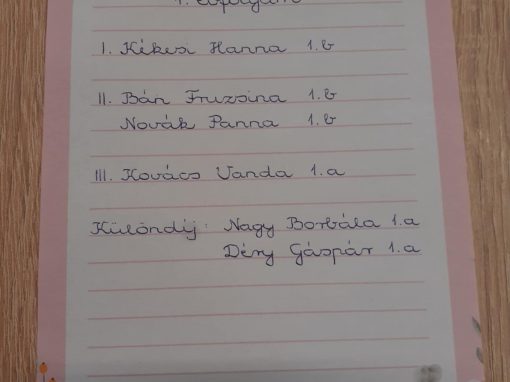 1. évfolyam
I. Kékesi Hanna 1.b
II. Bán Fruzsina 1.b
Novák Panna 1.b
III. Kovács Vanda 1.a
Különdíj: Nagy Borbála 1.a
Dény Gáspár 1.a